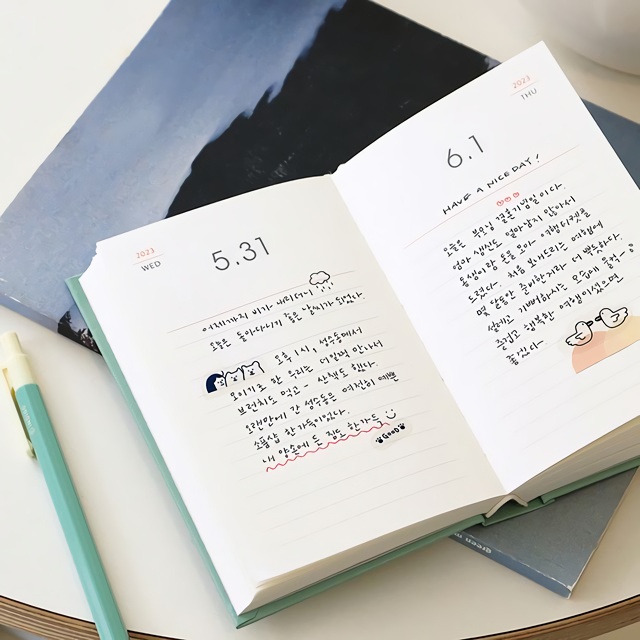 2023
WED
5.31
어제까지 비가 내리더니
오늘은 돌아다니기 좋은 날씨가 되었다.
오후 1시, 성수동에서
모이기로 한 우리는 만나서
브런치도 먹고~ 산책도 했다.
오랜만에 간 성수동은 여전히 예쁜
소품샵 한가득이었다.
내 양손에 든 짐도 한가득
GOOD
2023
THU
6.1
HAVE A NICE DAY!
오늘은 부모님 결혼기념일이다.
엄마 생신도 얼마 남지 않아서
동생이랑 돈을 모아 여행티켓을
드렸다. 처음 보내드리는 여행에
몇 달동안 준비한거라 더 뿌듯하다.
설레고 기뻐하시는 모습에 울컥~
즐겁고 행복한 여행이었으면
좋겠다~
green